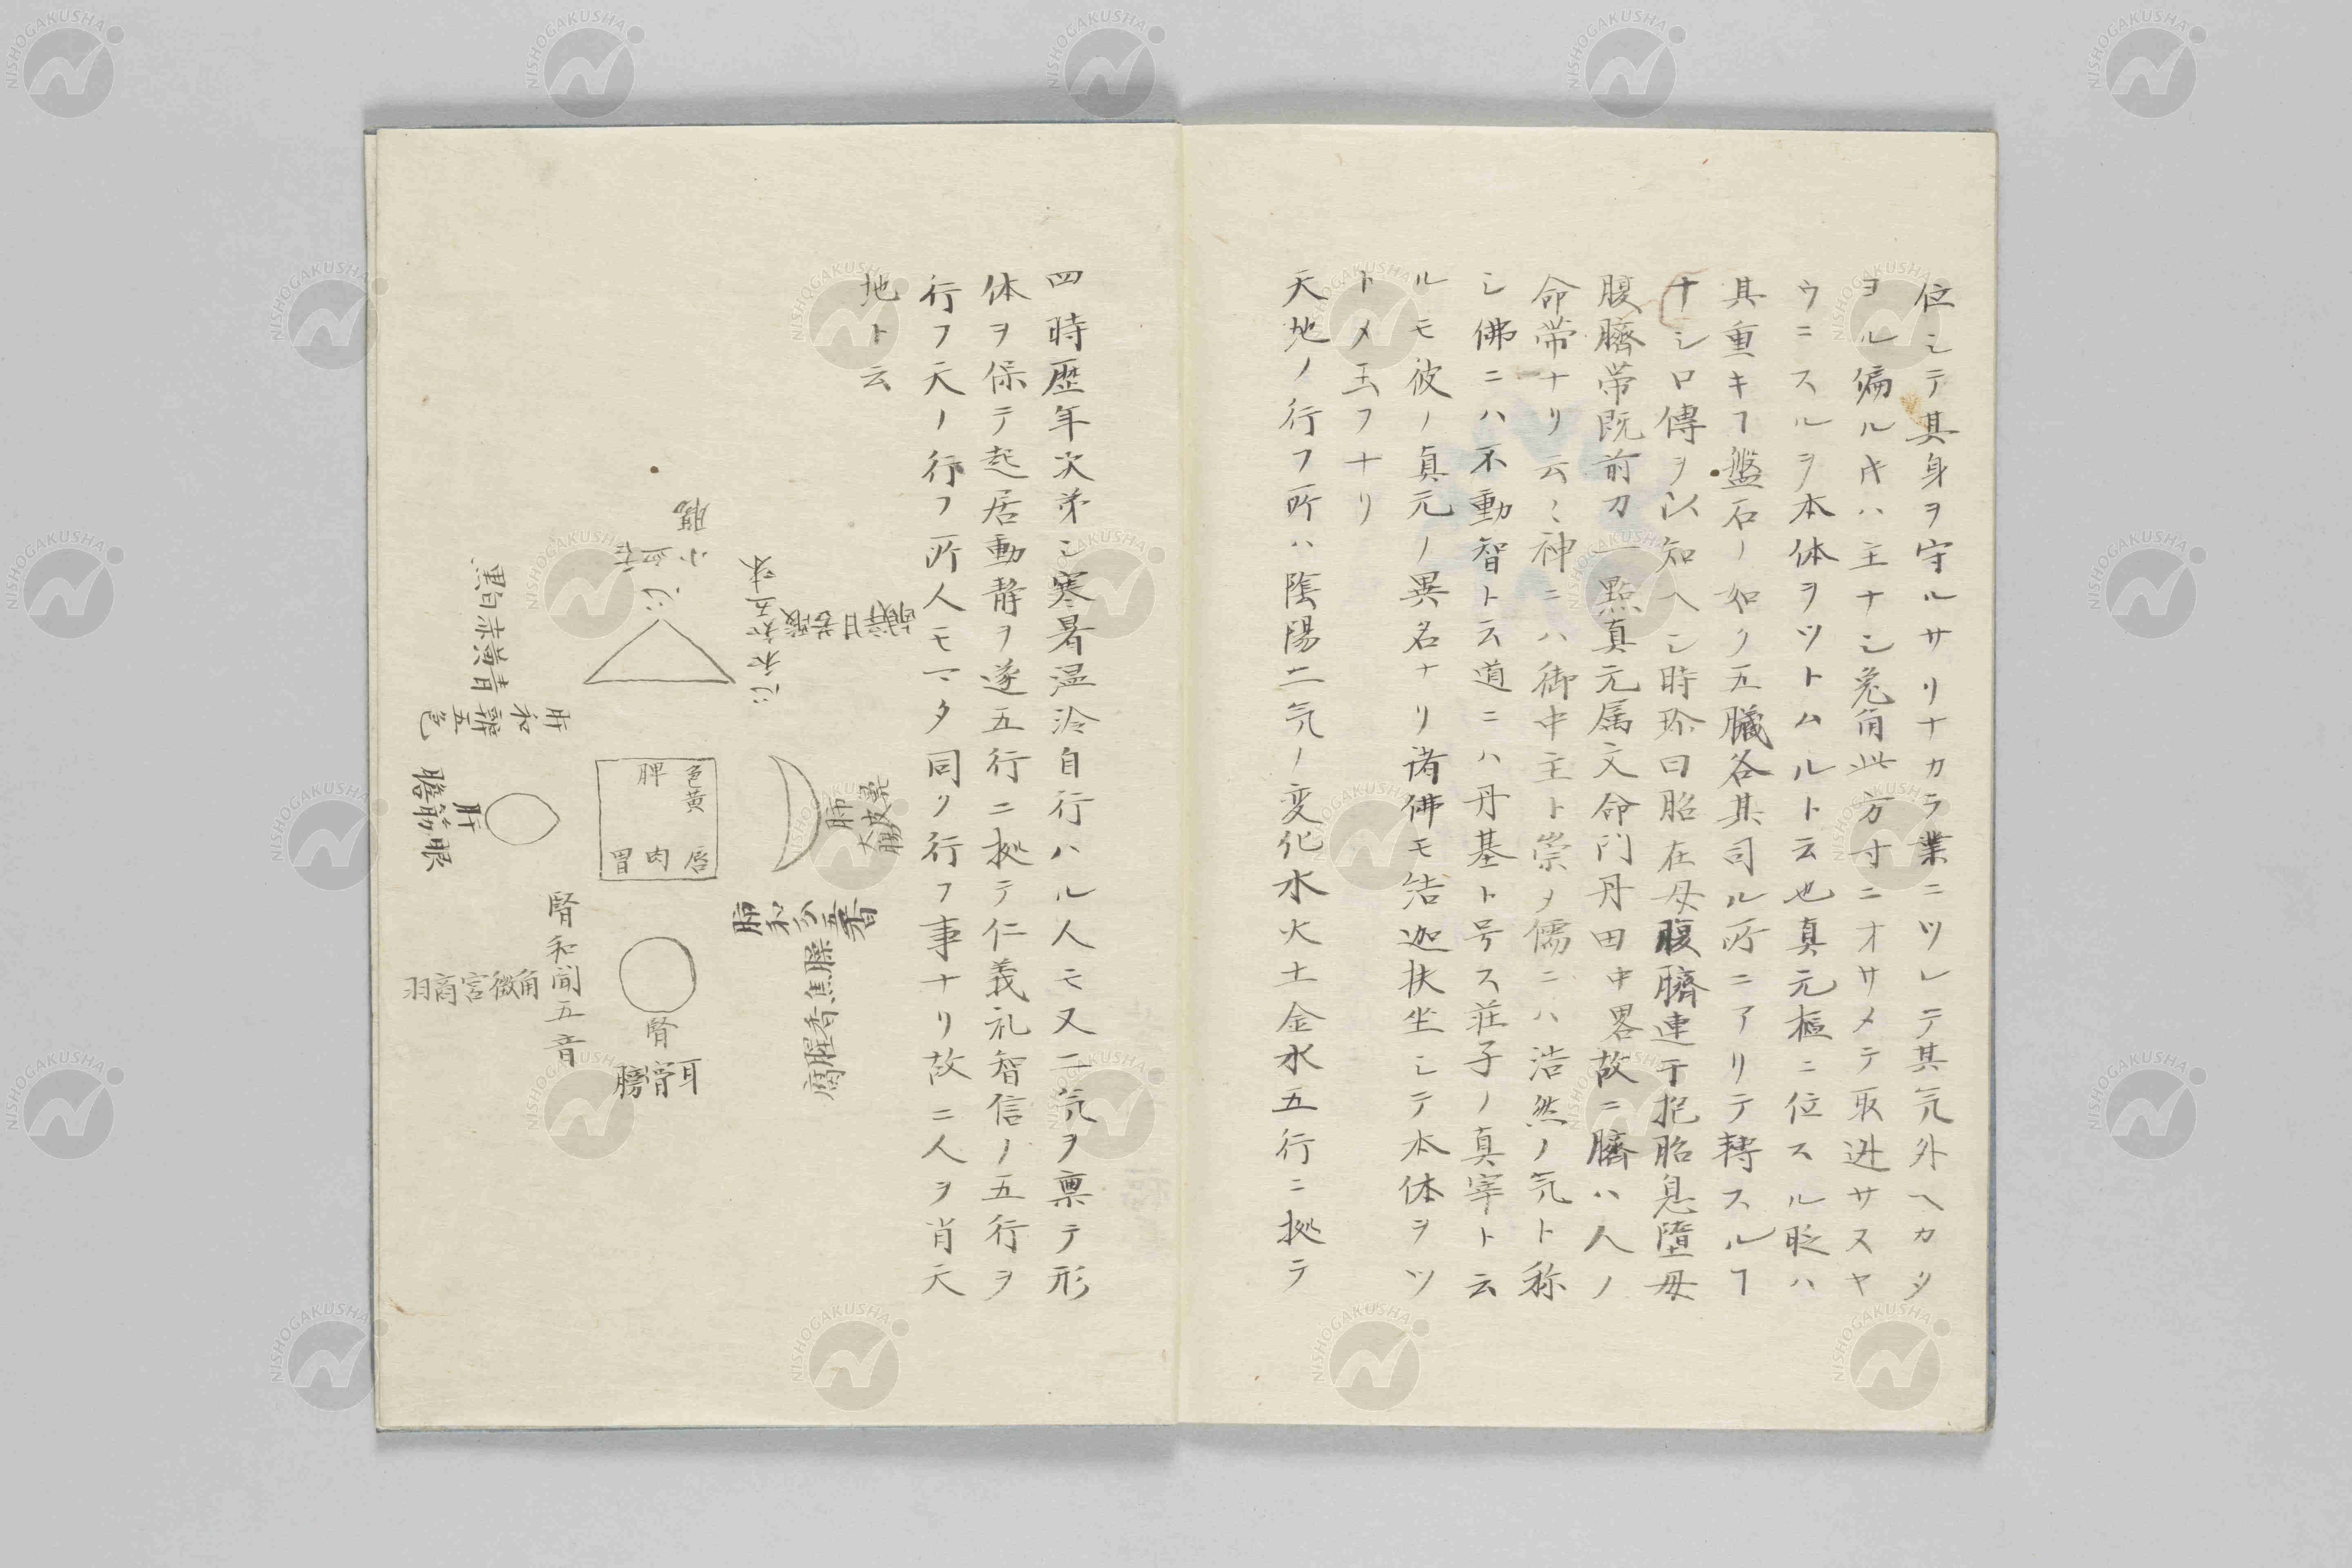 位シテ其身ヲ守ルサリナカラ業ニツレテ其気外ヘカタ
ヨル偏ル𪜈ハ主ナシ兎角此方寸ニオサメテ取迯サスヤ
ウニスルヲ本体ヲツトムルト云也真元樞ニ位スル眧ハ
其重キヿ盤石ノ如ク五臓各其司ル所ニアリテ轉スルヿ
ナシ口傳ヲ以知ヘシ時珍曰胎在母腹臍連于胞胎息墮母
腹臍帯既前刀一點真元属文命門丹田中畧故ニ臍ハ人ノ
命帯ナリ云〻神ニハ御中主ト崇メ儒ニハ浩然ノ気ト称
シ佛ニハ不動智ト云道ニハ丹基ト号ス荘子ノ真宰ト云
ルモ彼ノ真元ノ異名ナリ諸佛モ結迦扶坐シテ本体ヲツ
トメ玉フナリ
天地ノ行フ所ハ陰陽二気ノ変化水火土金水五行ニ拠テ
四時歴年次第シ寒暑温冷自行ハル人モ又二気ヲ禀テ形
体ヲ保テ起居動静ヲ遂五行ニ拠テ仁義礼智信ノ五行ヲ
行フ天ノ行フ所人モマタ同ク行フ事ナリ故ニ人ヲ肖天
地ト云
心和知五味
鹹辛甘苦酸
心
小血舌
腸
肺
大皮鼻
腸
肺和分五香
臊焦香腥腐
色黄
脾
唇
肉
胃
腎
耳骨膀
腎和聞五音
角徴宮商羽
肝
膽筋眼
肝和辨五色
青黄赤白黒
NISHOGAKUSHA